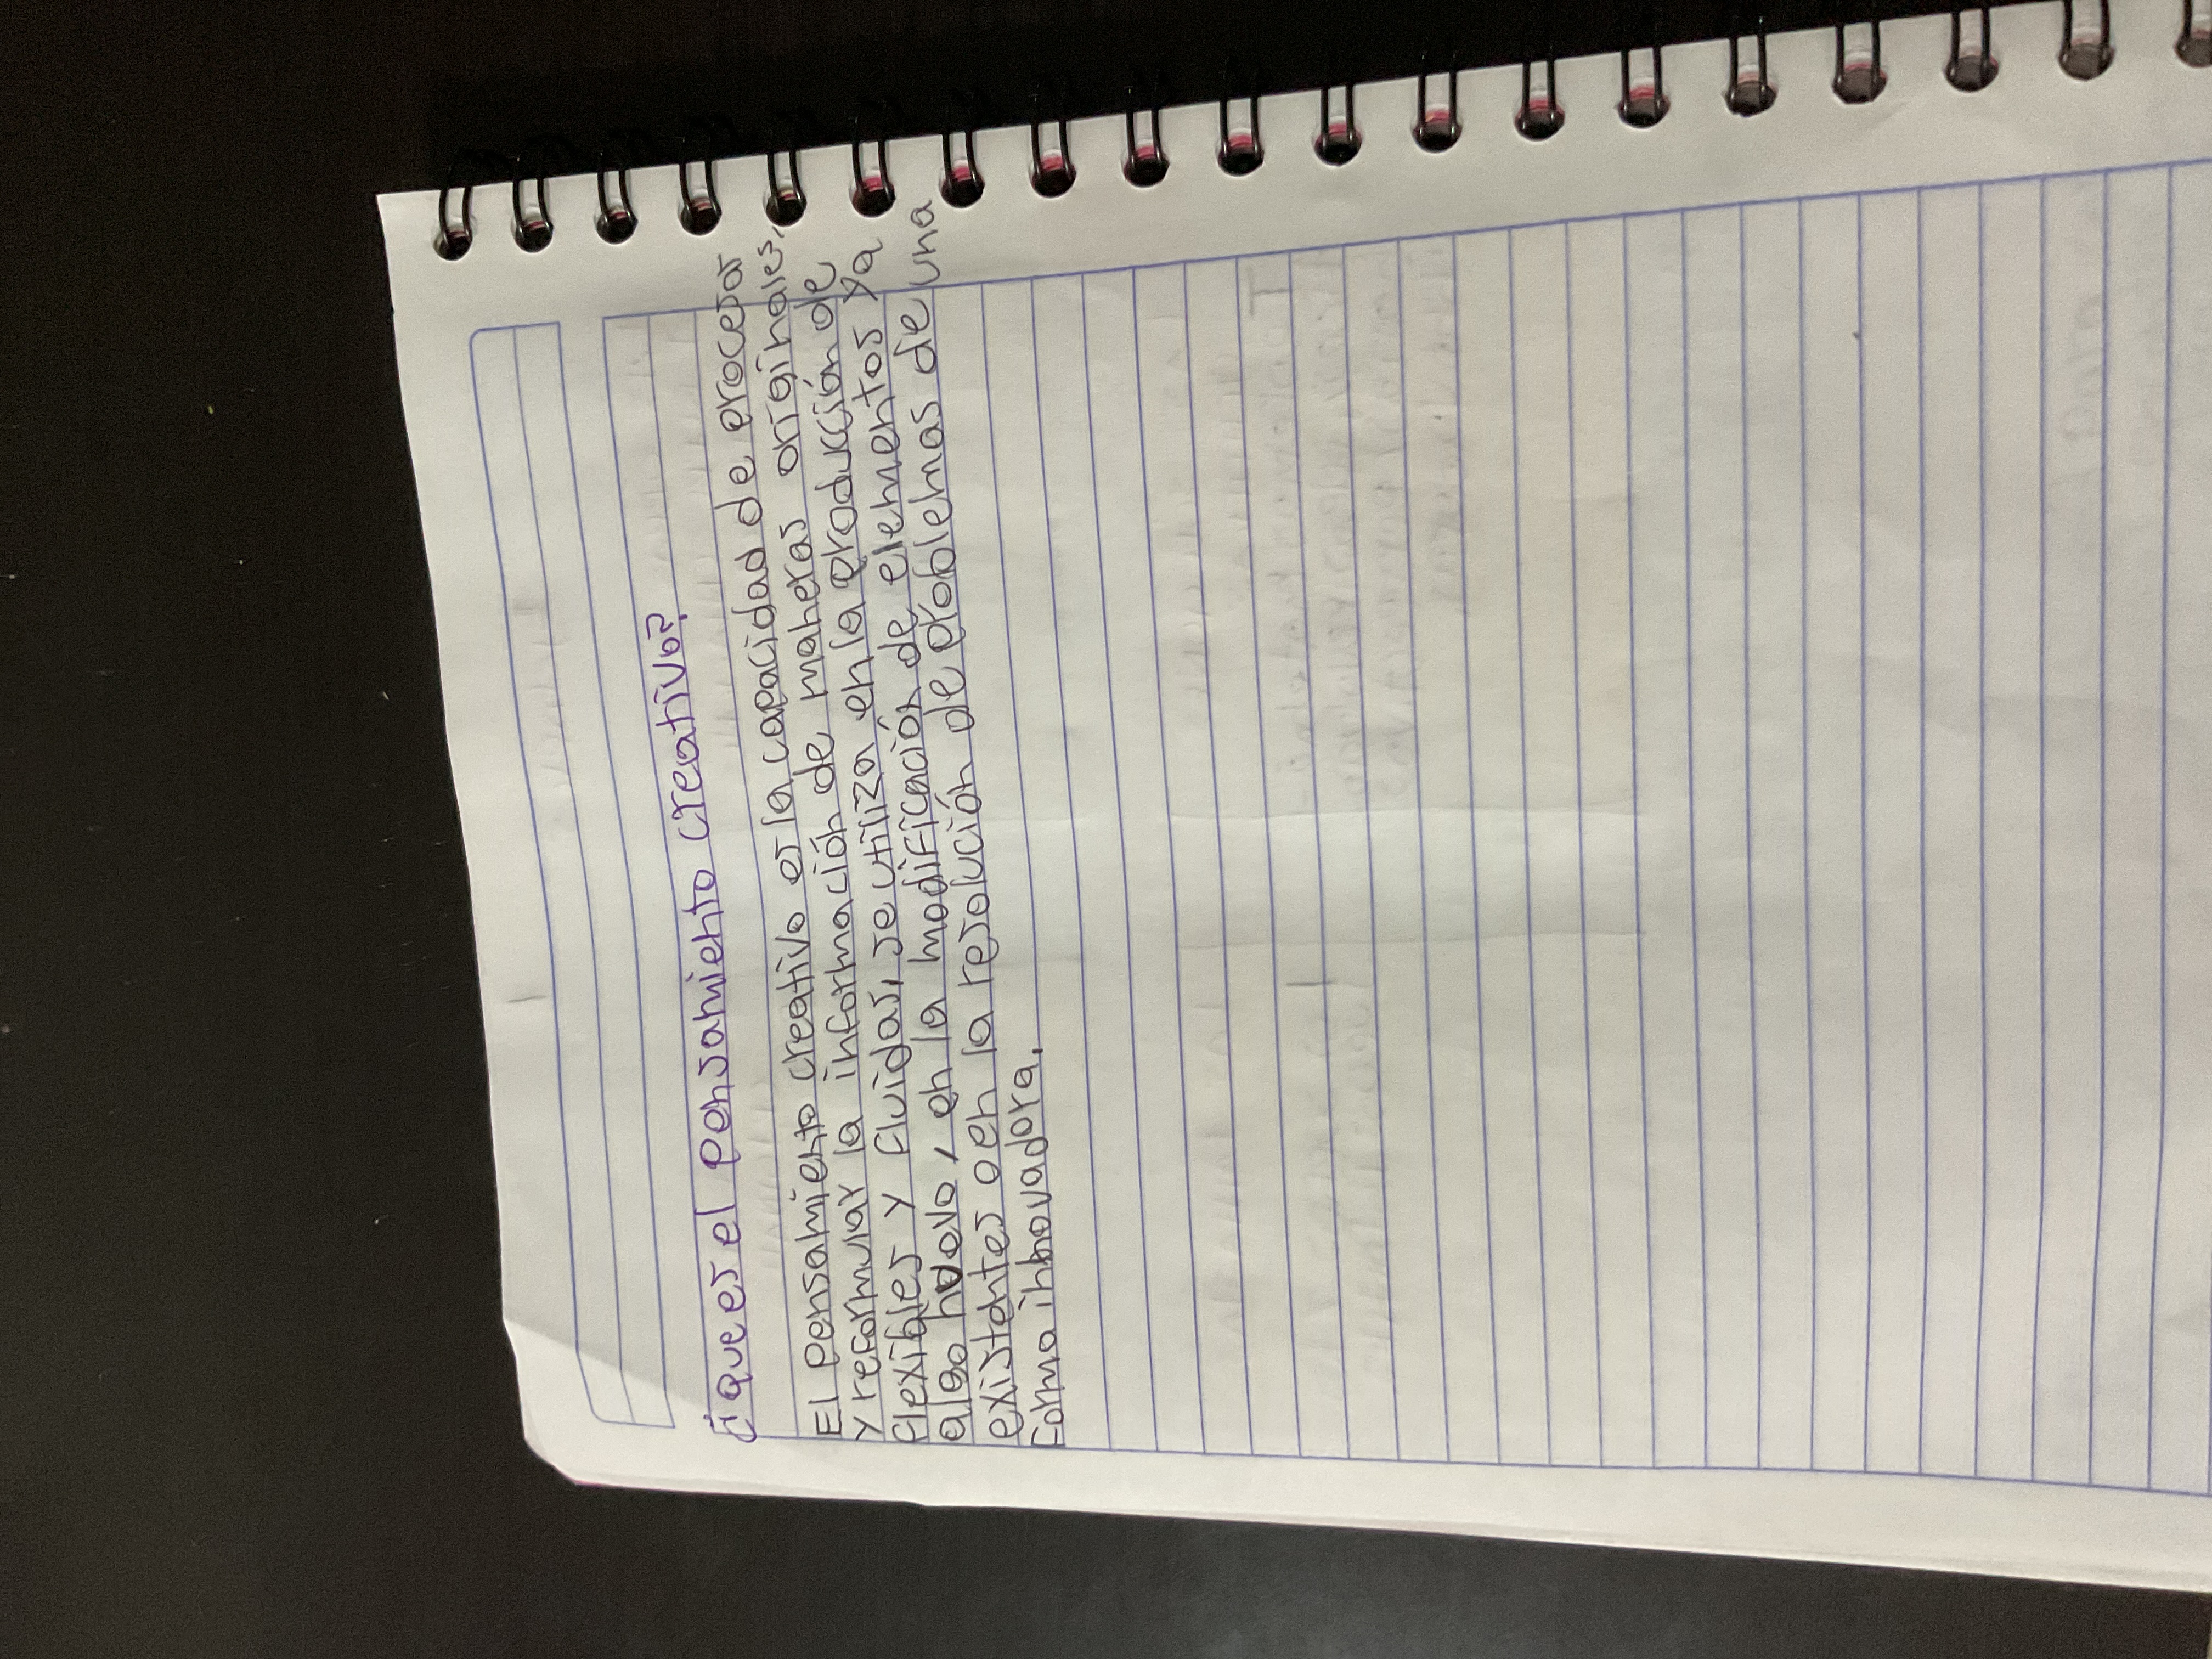 ¿que es el pensamiento creativo?
El pensamiento creativo es la capacidad de procesar
y reformular la información de maneras originales,
flexibles y fluidas, se utiliza en la producción de
algo nuevo, en la modificación de elementos ya
existentes o en la resolución de problemas de una
forma innovadora.